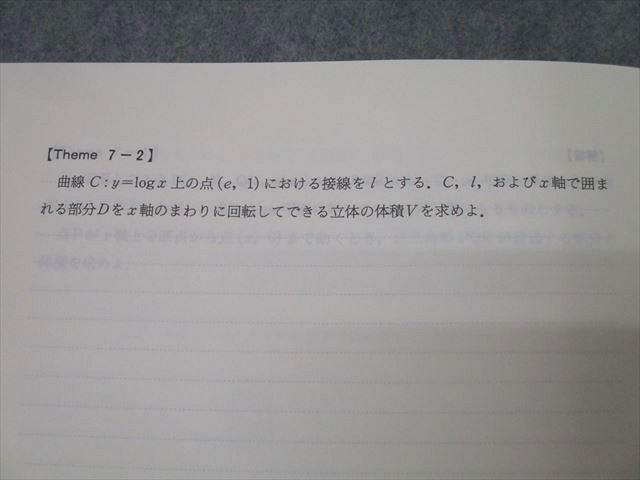 【Theme 7－2】
曲線 C : y＝log x 上の点 (e, 1) における接線を l とする．C，l，および x 軸で囲ま
れる部分 D を x 軸のまわりに回転してできる立体の体積 V を求めよ．